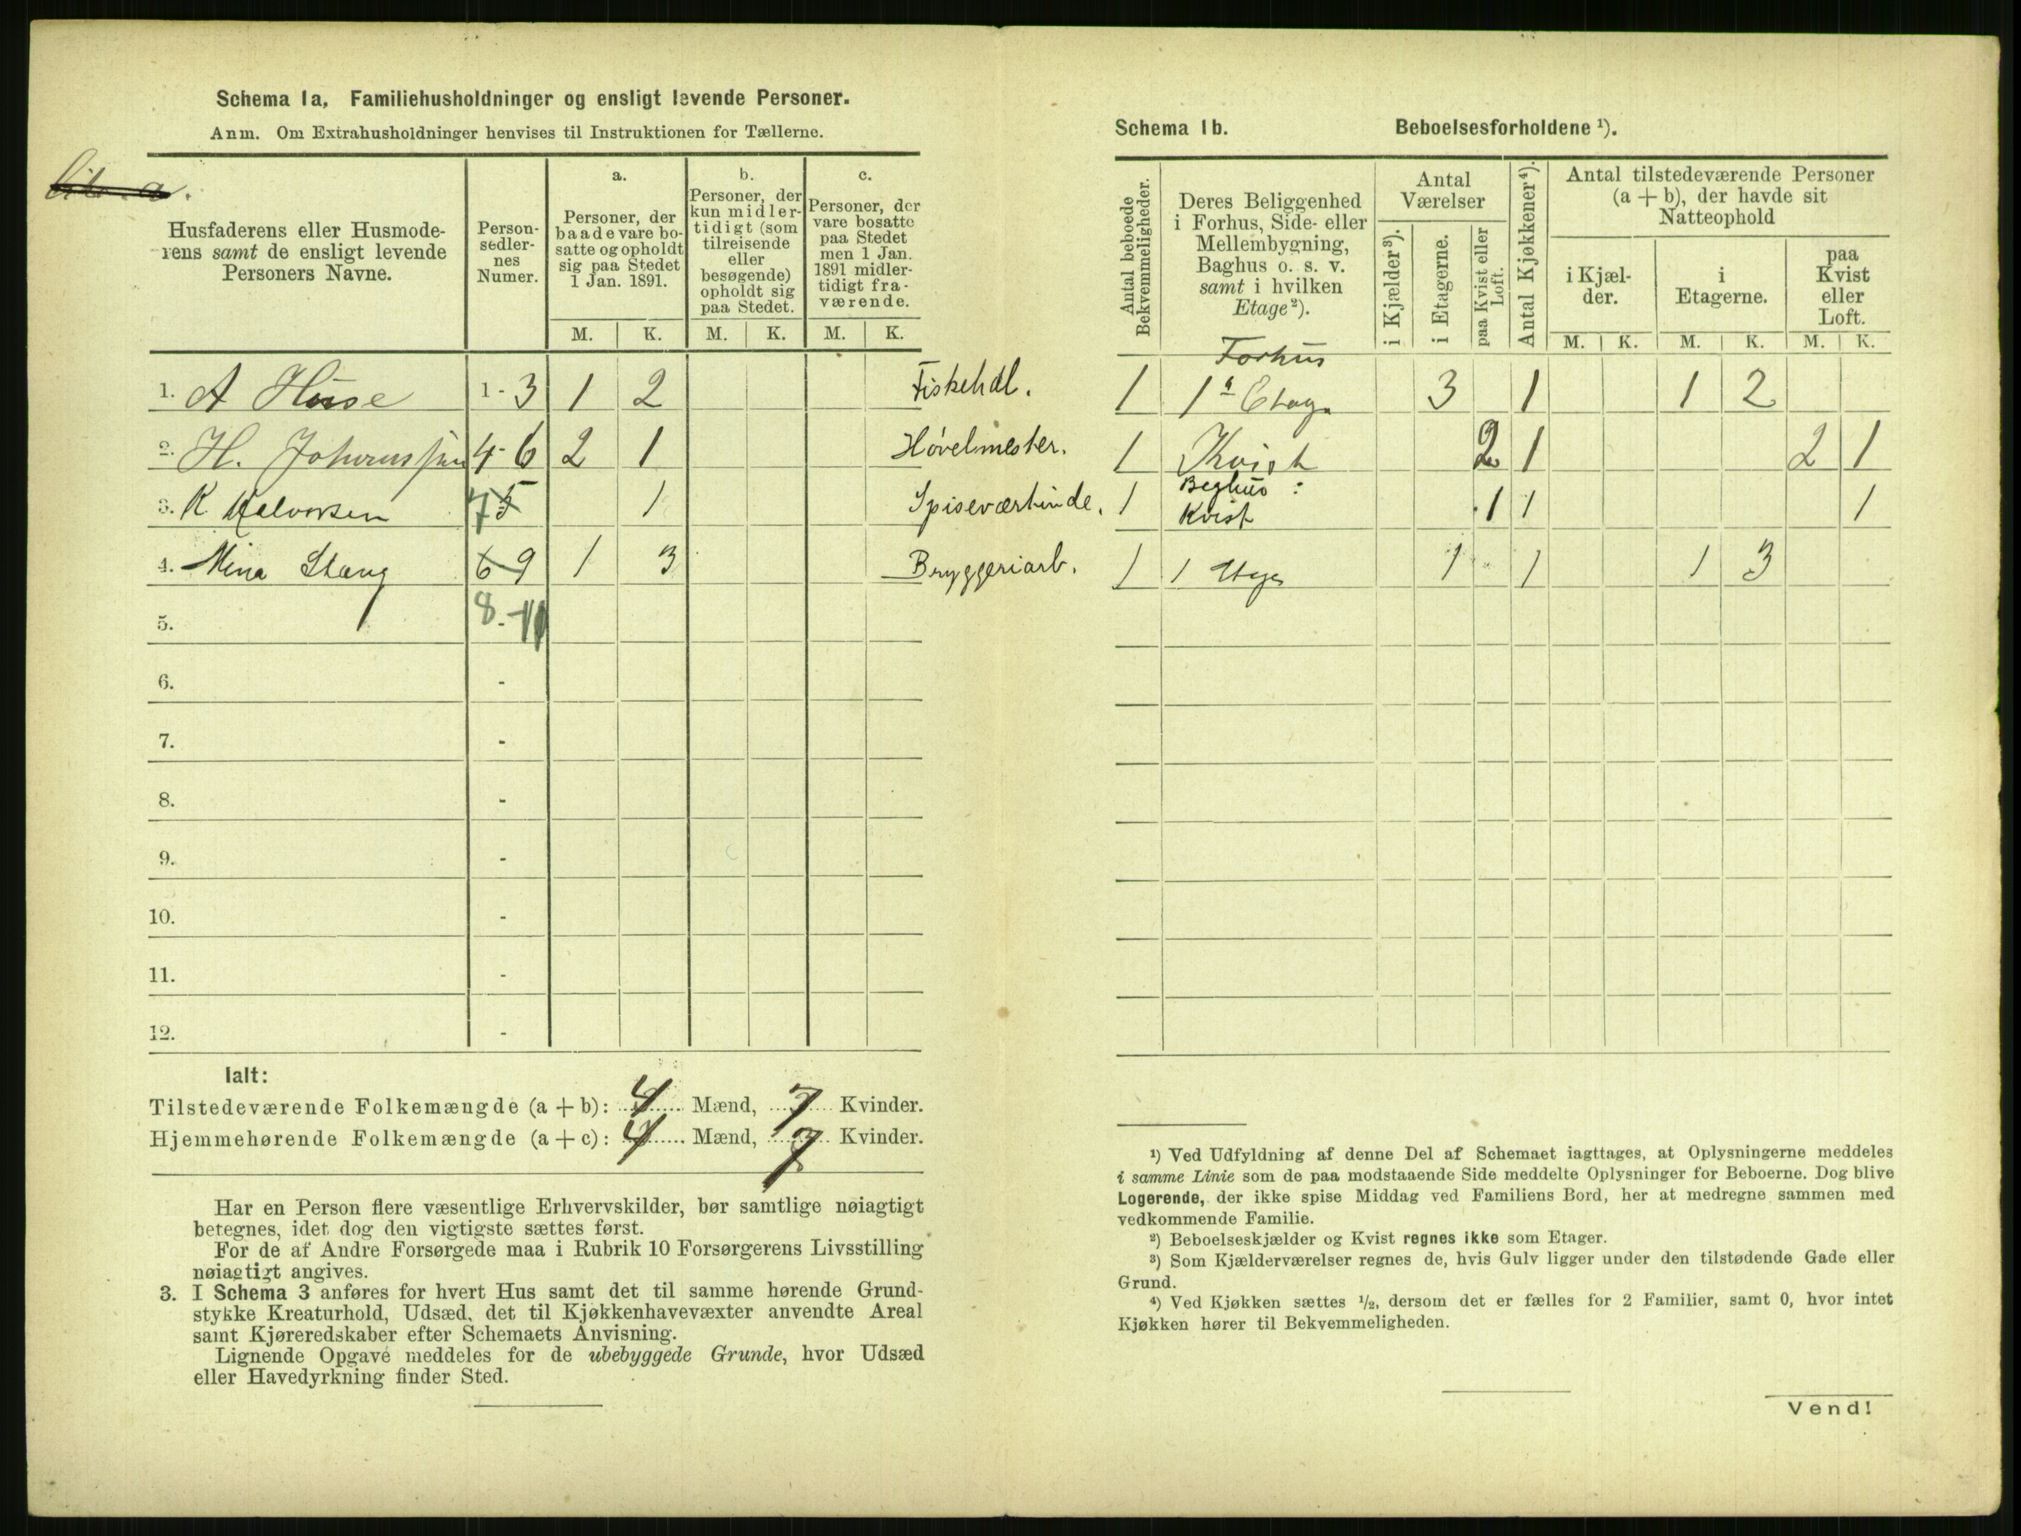 Schema 1a, Familiehusholdninger og ensligt levende Personer.
Anm. Om Extrahusholdninger henvises til Instruktionen for Tællerne.
Husfaderens eller Husmode-
rens samt de ensligt levende
Personers Navne.
Person-
sedler-
nes
Numer.
a.
Personer, der
baade vare bo-
satte og opholdt
sig paa Stedet
1 Jan. 1891.
b.
Personer, der
kun midler-
tidigt (som
tilreisende
eller
besøgende)
opholdt sig
paa Stedet.
c.
Personer, der
vare bosatte
paa Stedet
men 1 Jan.
1891 midler-
tidigt fra-
værende.
M. K. M. K. M. K.
1. A Huse 1-3 1 2 Fiskehdl.
2. H. 4-6 2 1 Høvelmester.
3. K Halvorsen 7 5 1 Spiseværtinde.
4. Mina Stang 6 9 1 3 Bryggeriarb.
5. 8-11
6. -
7. -
8. -
9. -
10. -
11. -
12. -
Ialt:
Tilstedeværende Folkemængde (a + b): 4 Mænd, 7 Kvinder.
Hjemmehørende Folkemængde (a + c): 4 Mænd, 7 Kvinder.
Har en Person flere væsentlige Erhvervskilder, bør samtlige nøiagtigt
betegnes, idet dog den vigtigste sættes først.
For de af Andre Forsørgede maa i Rubrik 10 Forsørgerens Livsstilling
nøiagtigt angives.
3. I Schema 3 anføres for hvert Hus samt det til samme hørende Grund-
stykke Kreaturhold, Udsæd, det til Kjøkkenhavevæxter anvendte Areal
samt Kjøreredskaber efter Schemaets Anvisning.
Lignende Opgave meddeles for de ubebyggede Grunde, hvor Udsæd
eller Havedyrkning finder Sted.
Schema 1b. Beboelsesforholdene ¹).
Antal beboede
Bekvemmeligheder.
Deres Beliggenhed
i Forhus, Side- eller
Mellembygning,
Baghus o. s. v.
samt i hvilken
Etage²).
Antal
Værelser
i Kjælder³).
i Etagerne.
paa Kvist eller
Loft.
Antal Kjøkkener⁴).
Antal tilstedeværende Personer
(a + b), der havde sit
Natteophold
i Kjæl-
der.
i
Etagerne.
paa
Kvist
eller
Loft.
M. K. M. K. M. K.
Forhus
1 1ª Etage 3 1 1 2
1 Kvist 2 1 2 1
Baghus :
1 Kvist 1 1 1
1 1 Etage 1 1 1 3
¹) Ved Udfyldning af denne Del af Schemaet iagttages, at Oplysningerne meddeles
i samme Linie som de paa modstaaende Side meddelte Oplysninger for Beboerne. Dog blive
Logerende, der ikke spise Middag ved Familiens Bord, her at medregne sammen med
vedkommende Familie.
²) Beboelseskjælder og Kvist regnes ikke som Etager.
³) Som Kjælderværelser regnes de, hvis Gulv ligger under den tilstødende Gade eller
Grund.
⁴) Ved Kjøkken sættes ½, dersom det er fælles for 2 Familier, samt 0, hvor intet
Kjøkken hører til Bekvemmeligheden.
Vend!